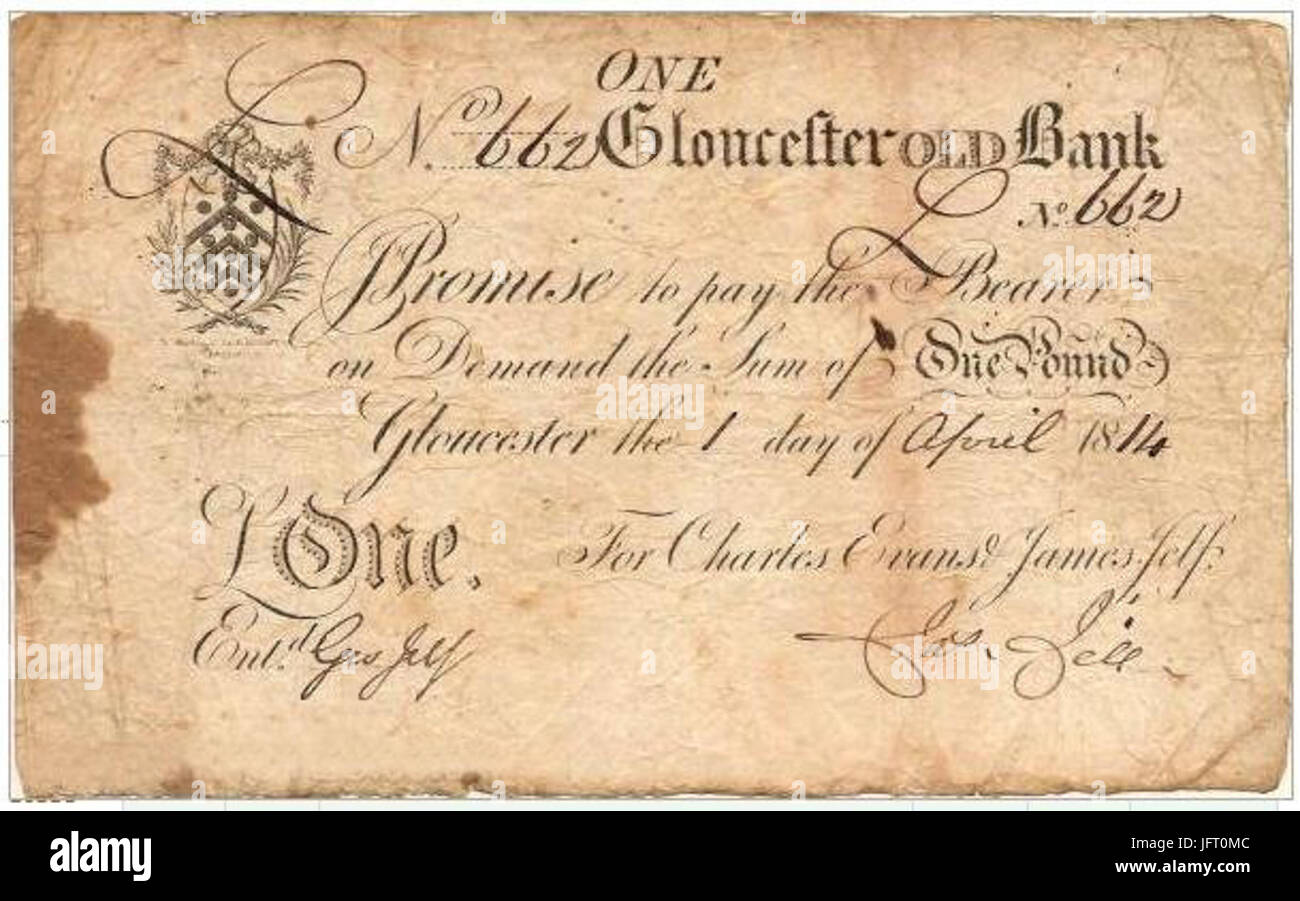 ONE
No. 662 Gloucester OLD Bank
No. 662
I Promise to pay the Bearer
on Demand the Sum of One Pound
Gloucester the 1 day of April 1814
£ One. For Charles Evans & James Jelf.
Ent.d Geo Jelf Jas. Jelf
a alamy stock photo
alamy
JFT0MC
www.alamy.com